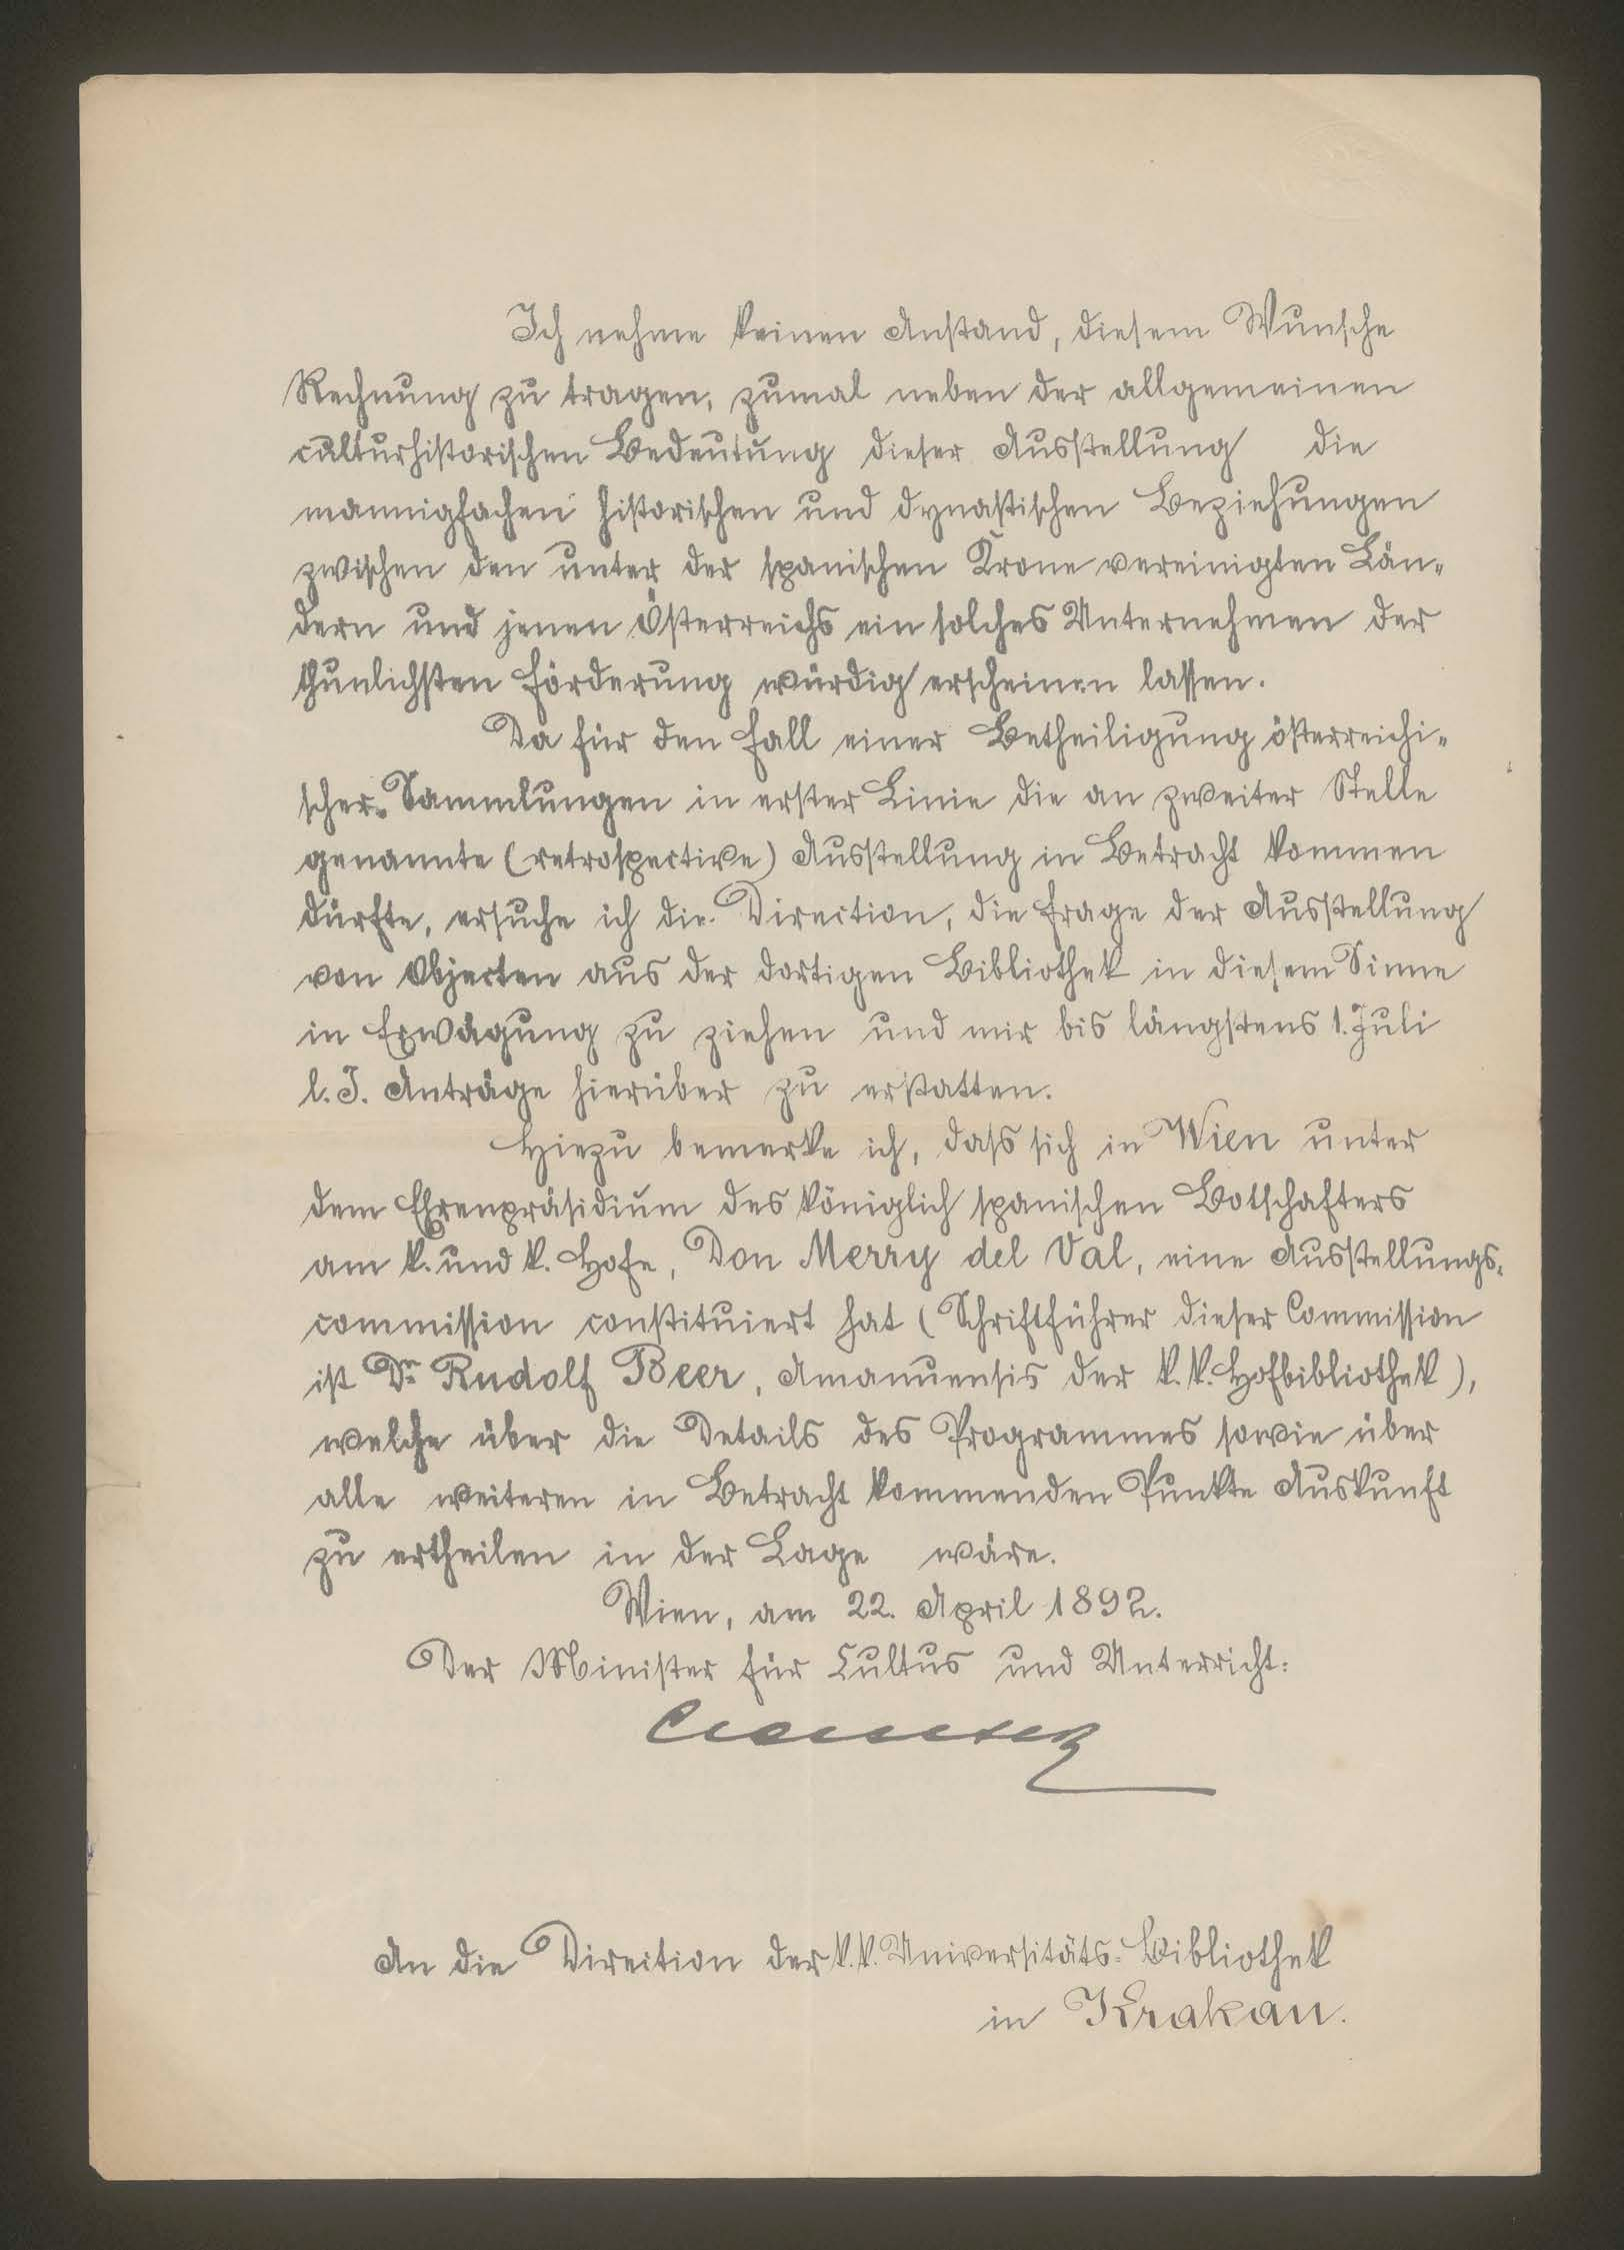 Ich nehme keinen Anstand, diesem Wunsche
Rechnung zu tragen, zumal neben der allgemeinen
culturhistorischen Bedeutung dieser Ausstellung die
mannigfachen historischen und dynastischen Beziehungen
zwischen den unter der spanischen Krone vereinigten Län-
dern und jenen Österreichs ein solches Unternehmen der
thunlichsten Förderung würdig erscheinen lassen.
Da für den Fall einer Betheiligung österreichi-
scher Sammlungen in erster Linie die an zweiter Stelle
genannte (retrospective) Ausstellung in Betracht kommen
dürfte, ersuche ich die Direction, die Frage der Ausstellung
von Objecten aus der dortigen Bibliothek in diesem Sinne
in Erwägung zu ziehen und mir bis längstens 1. Juli
l. J. Anträge hierüber zu erstatten.
Hiezu bemerke ich, dass sich in Wien unter
dem Ehrenpräsidium des königlich spanischen Botschafters
am k. und k. Hofe, Don Merry del Val, eine Ausstellungs-
commission constituiert hat (Schriftführer dieser Commission
ist Dr. Rudolf Beer, Amanuensis der k. k. Hofbibliothek),
welche über die Details des Programmes sowie über
alle weiteren in Betracht kommenden Punkte Auskunft
zu ertheilen in der Lage wäre.
Wien, am 22. April 1892.
Der Minister für Cultus und Unterricht:
An die Direction der k. k. Universitäts-Bibliothek
in Krakau.